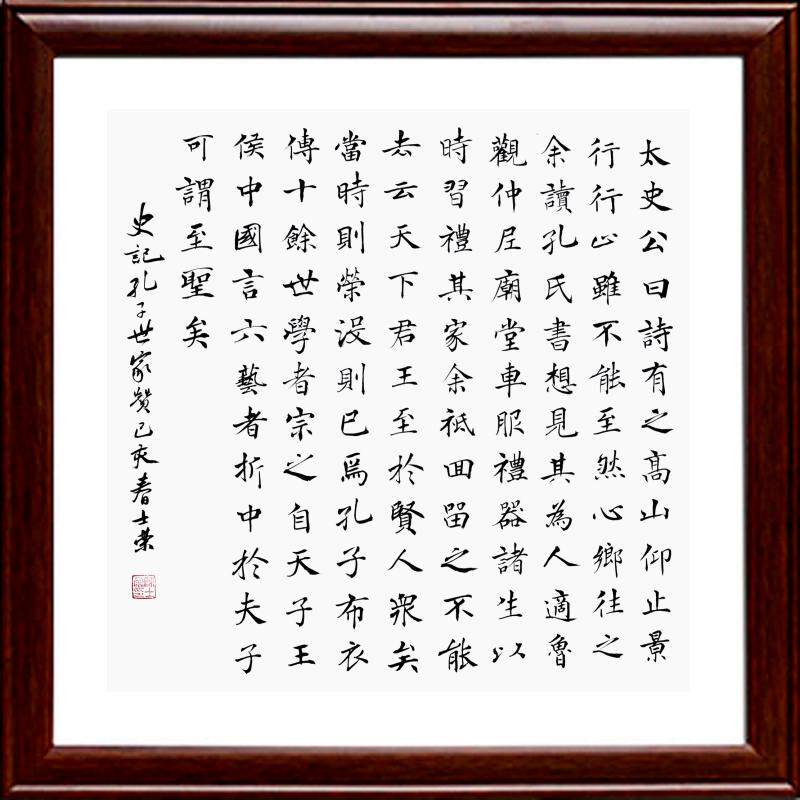 太史公曰詩有之高山仰止景
行行止雖不能至然心鄉往之
余讀孔氏書想見其為人適魯
觀仲尼廟堂車服禮器諸生以
時習禮其家余祗回留之不能
去云天下君王至於賢人衆矣
當時則榮没則已焉孔子布衣
傳十餘世學者宗之自天子王
侯中國言六藝者折中於夫子
可謂至聖矣
史記孔子世家贊己亥春士榮